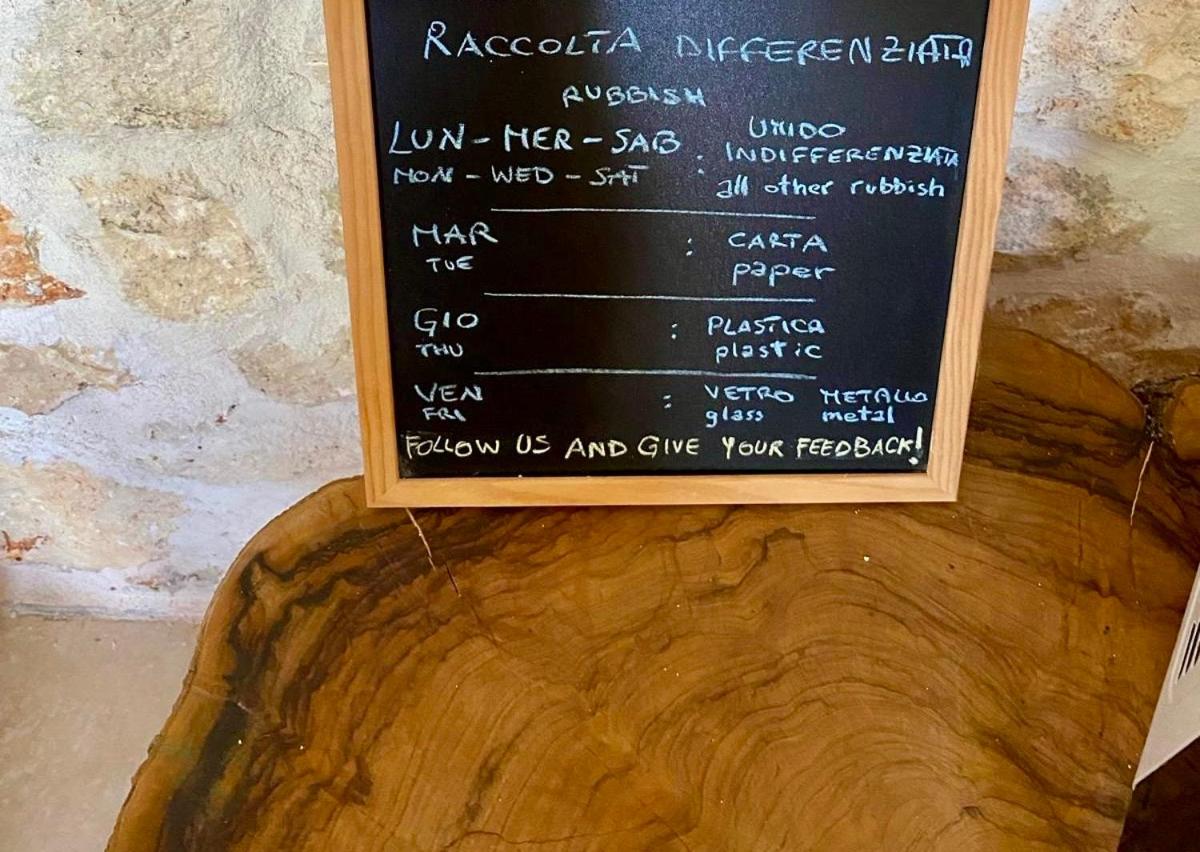 RACCOLTA DIFFERENZIATA
RUBBISH
LUN - MER - SAB : UMIDO
INDIFFERENZIATA
MON - WED - SAT all other rubbish
MAR : CARTA
TUE paper
GIO : PLASTICA
THU plastic
VEN : VETRO METALLO
FRI glass metal
FOLLOW US AND GIVE YOUR FEEDBACK!